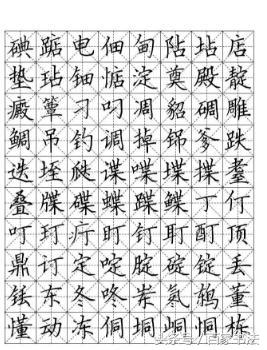 碘踮电佃甸阽坫店
垫玷钿惦淀奠殿靛
癜簟刁叼凋貂碉雕
鲷吊钓调掉铞爹跌
迭垤瓞谍喋堞揲耋
叠牒碟蝶蹀鲽丁仃
叮玎疔盯钉耵酊顶
鼎订定啶腚碇锭丢
铥东冬咚岽氡鸫董
懂动冻侗垌峒恫栋
头条号/百家书法